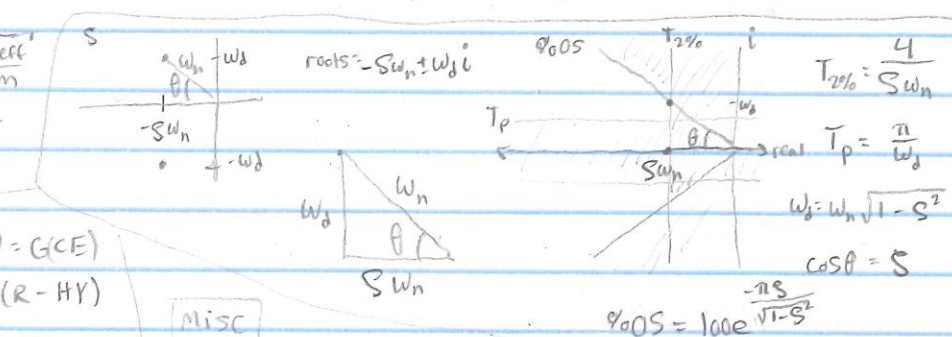 eff
m
S
ωn
ωd
θ
-ζωn
-ωd
roots = -ζωn ± ωd i
ωd
ωn
θ
ζωn
%OS
T2%
i
ωd
Tp
θ
real
ζωn
T2% = 4/ζωn
Tp = π/ωd
ωd = ωn √1-ζ²
cosθ = ζ
%OS = 100e^(-πζ/√1-ζ²)
= G(CE)
(R - HY)
MISC